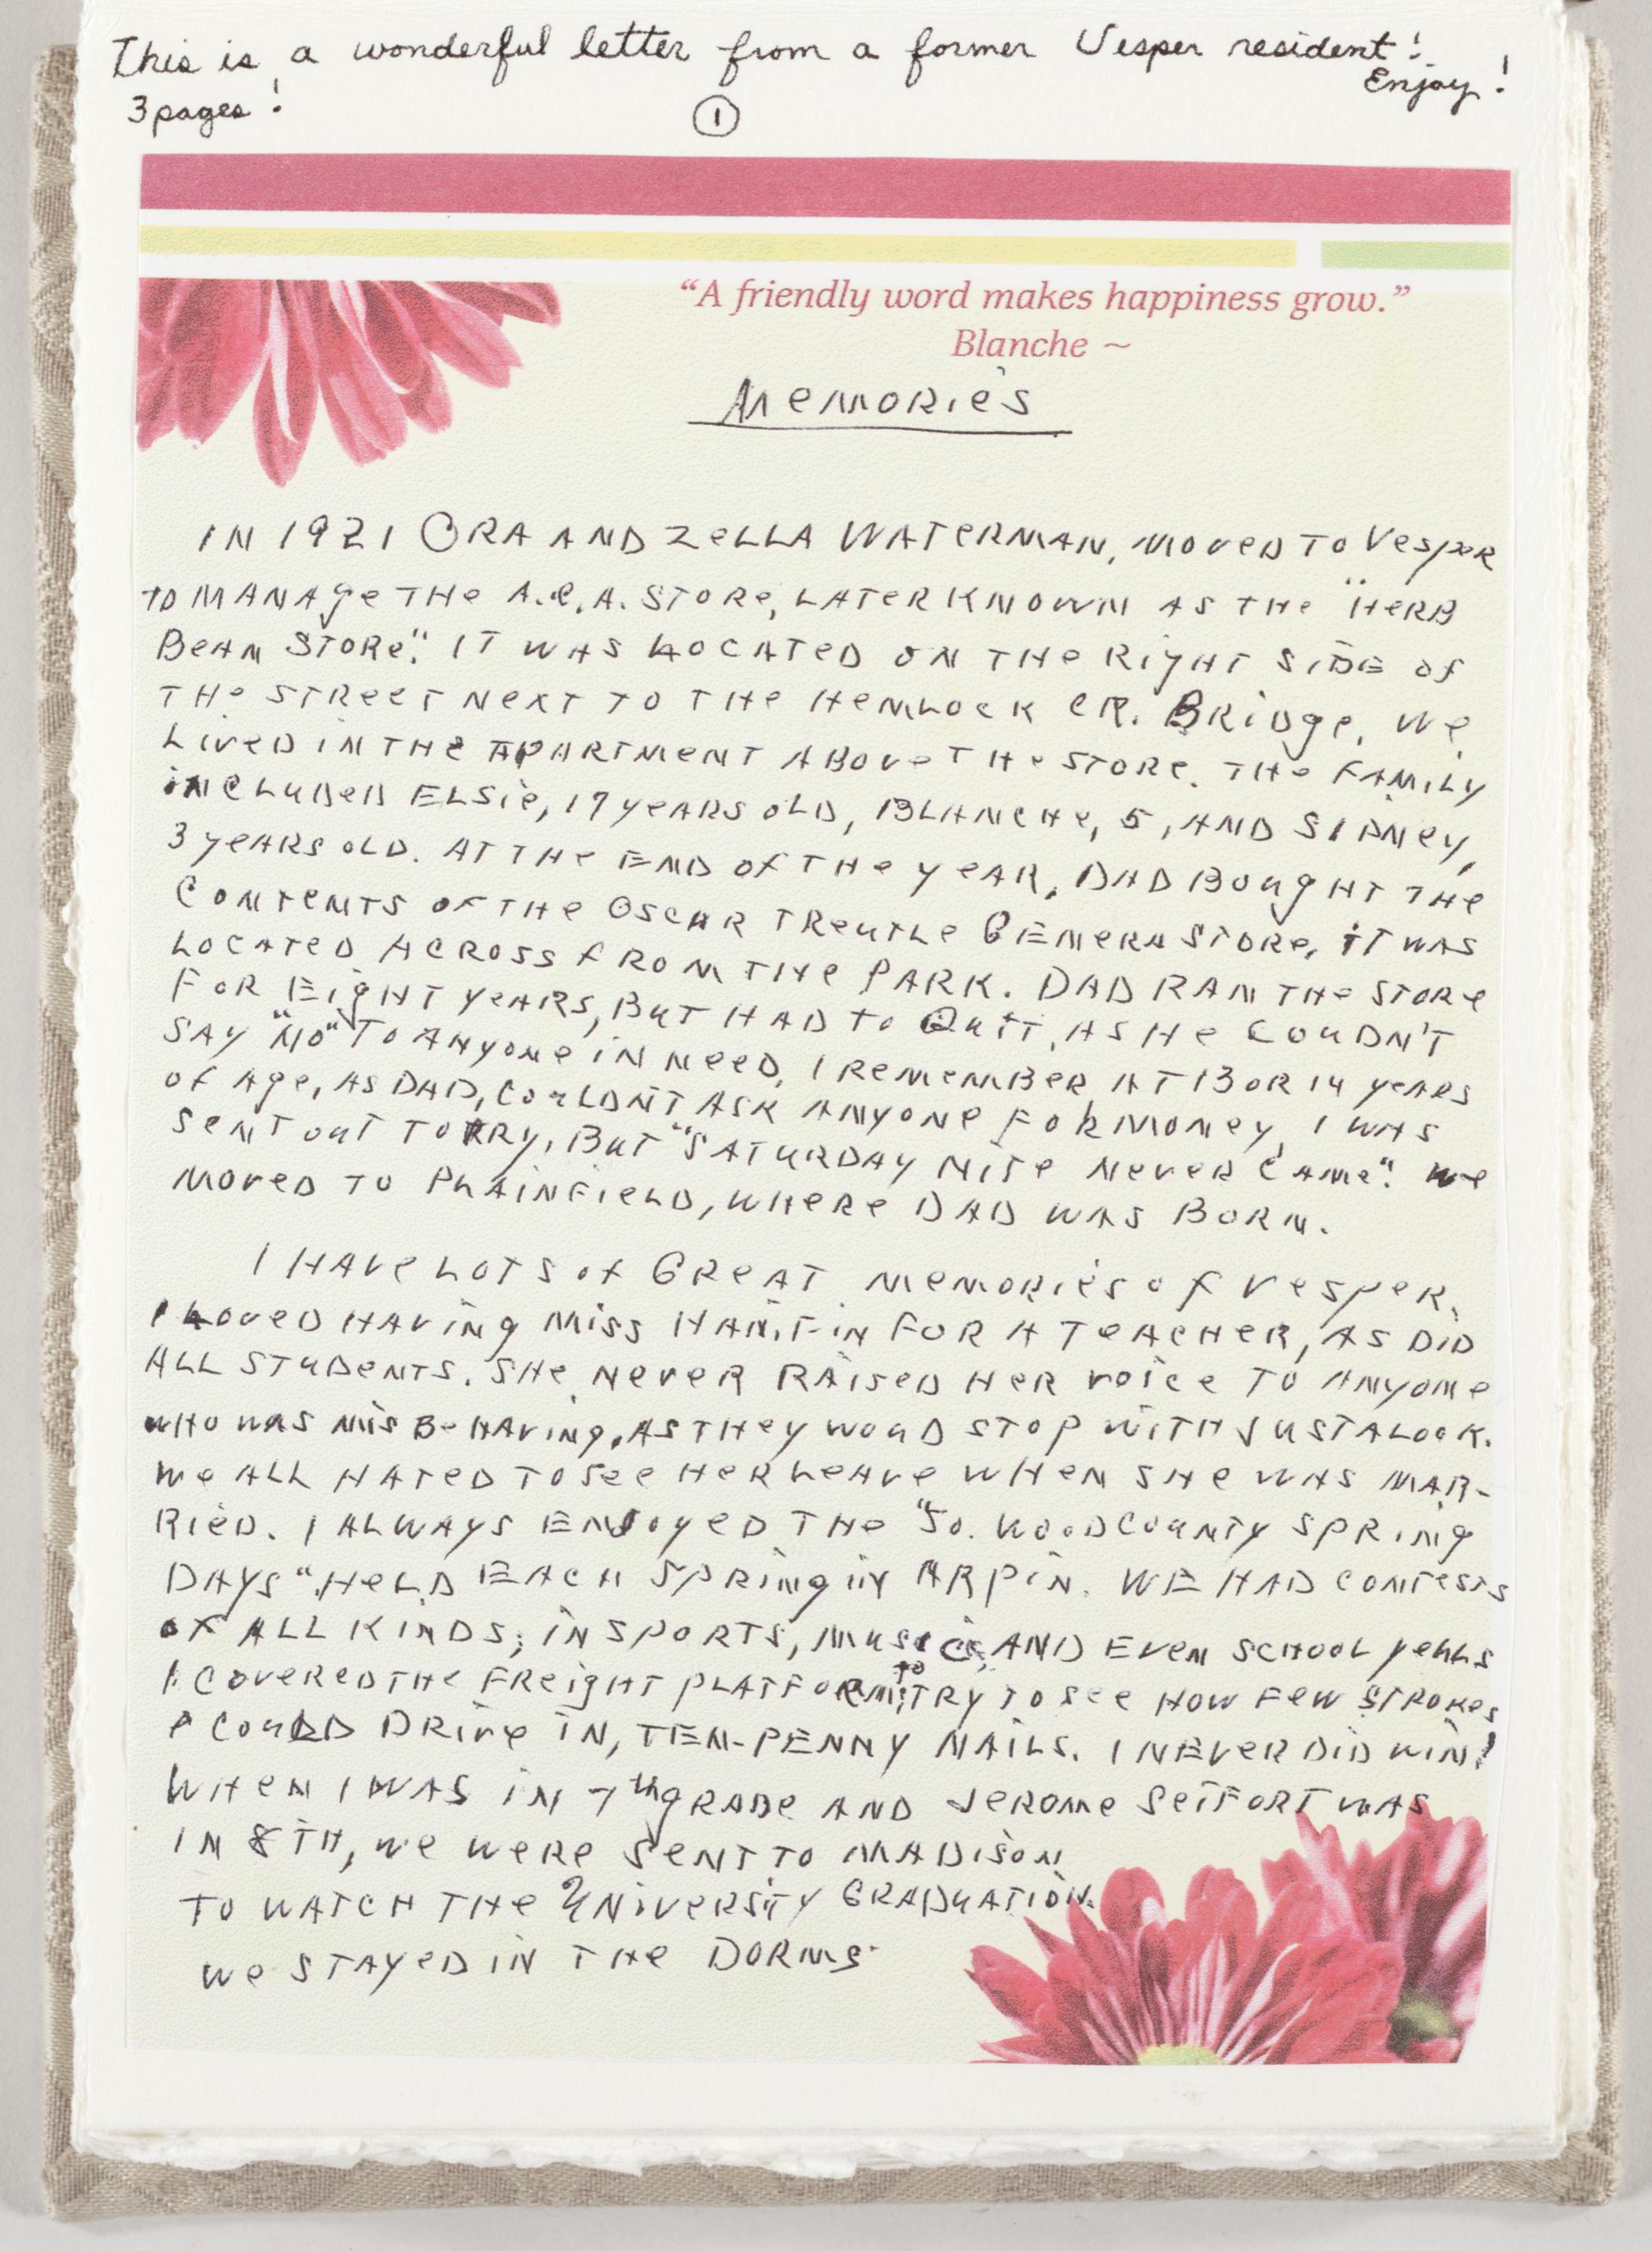 This is a wonderful letter from a former Vesper resident!
Enjoy!
3 pages!
1
“A friendly word makes happiness grow.”
Blanche ~
Memories
IN 1921 ORA AND ZELLA WATERMAN, MOVED TO VESPER
TO MANAGE THE A.C.A. STORE, LATER KNOWN AS THE "HERB
BEAN STORE". IT WAS LOCATED ON THE RIGHT SIDE OF
THE STREET NEXT TO THE HEMLOCK CR. BRIDGE. WE
LIVED IN THE APARTMENT ABOVE THE STORE. THE FAMILY
INCLUDED ELSIE, 17 YEARS OLD, BLANCHE, 5, AND SIDNEY,
3 YEARS OLD. AT THE END OF THE YEAR, DAD BOUGHT THE
CONTENTS OF THE OSCAR TREUTLE GENERA STORE, IT WAS
LOCATED ACROSS FROM THE PARK. DAD RAN THE STORE
FOR EIGHT YEARS, BUT HAD TO QUIT, AS HE COUDN'T
SAY "NO" TO ANYONE IN NEED. I REMEMBER AT 13 OR 14 YEARS
OF AGE, AS DAD, COULDN'T ASK ANYONE FOR MONEY, I WAS
SENT OUT TO TRY, BUT "SATURDAY NITE NEVER CAME". WE
MOVED TO PLAINFIELD, WHERE DAD WAS BORN.
I HAVE LOTS OF GREAT MEMORIES OF VESPER.
I LOVED HAVING MISS HANIFIN FOR A TEACHER, AS DID
ALL STUDENTS. SHE NEVER RAISED HER VOICE TO ANYONE
WHO WAS MISBEHAVING, AS THEY WOUD STOP WITH JUST A LOOK.
WE ALL HATED TO SEE HER LEAVE WHEN SHE WAS MAR-
RIED. I ALWAYS ENJOYED THE "SO. WOOD COUNTY SPRING
DAYS" HELD EACH SPRING IN ARPIN. WE HAD CONTESTS
OF ALL KINDS; IN SPORTS, MUSIC, AND EVEN SCHOOL YELLS
I COVERED THE FREIGHT PLATFORM, TO TRY TO SEE HOW FEW STROKES
I COULD DRIVE IN, TEN-PENNY NAILS. I NEVER DID WIN!
WHEN I WAS IN 7th GRADE AND JEROME SEIFORT WAS
IN 8TH, WE WERE SENT TO MADISON
TO WATCH THE UNIVERSITY GRADUATION.
WE STAYED IN THE DORMS.